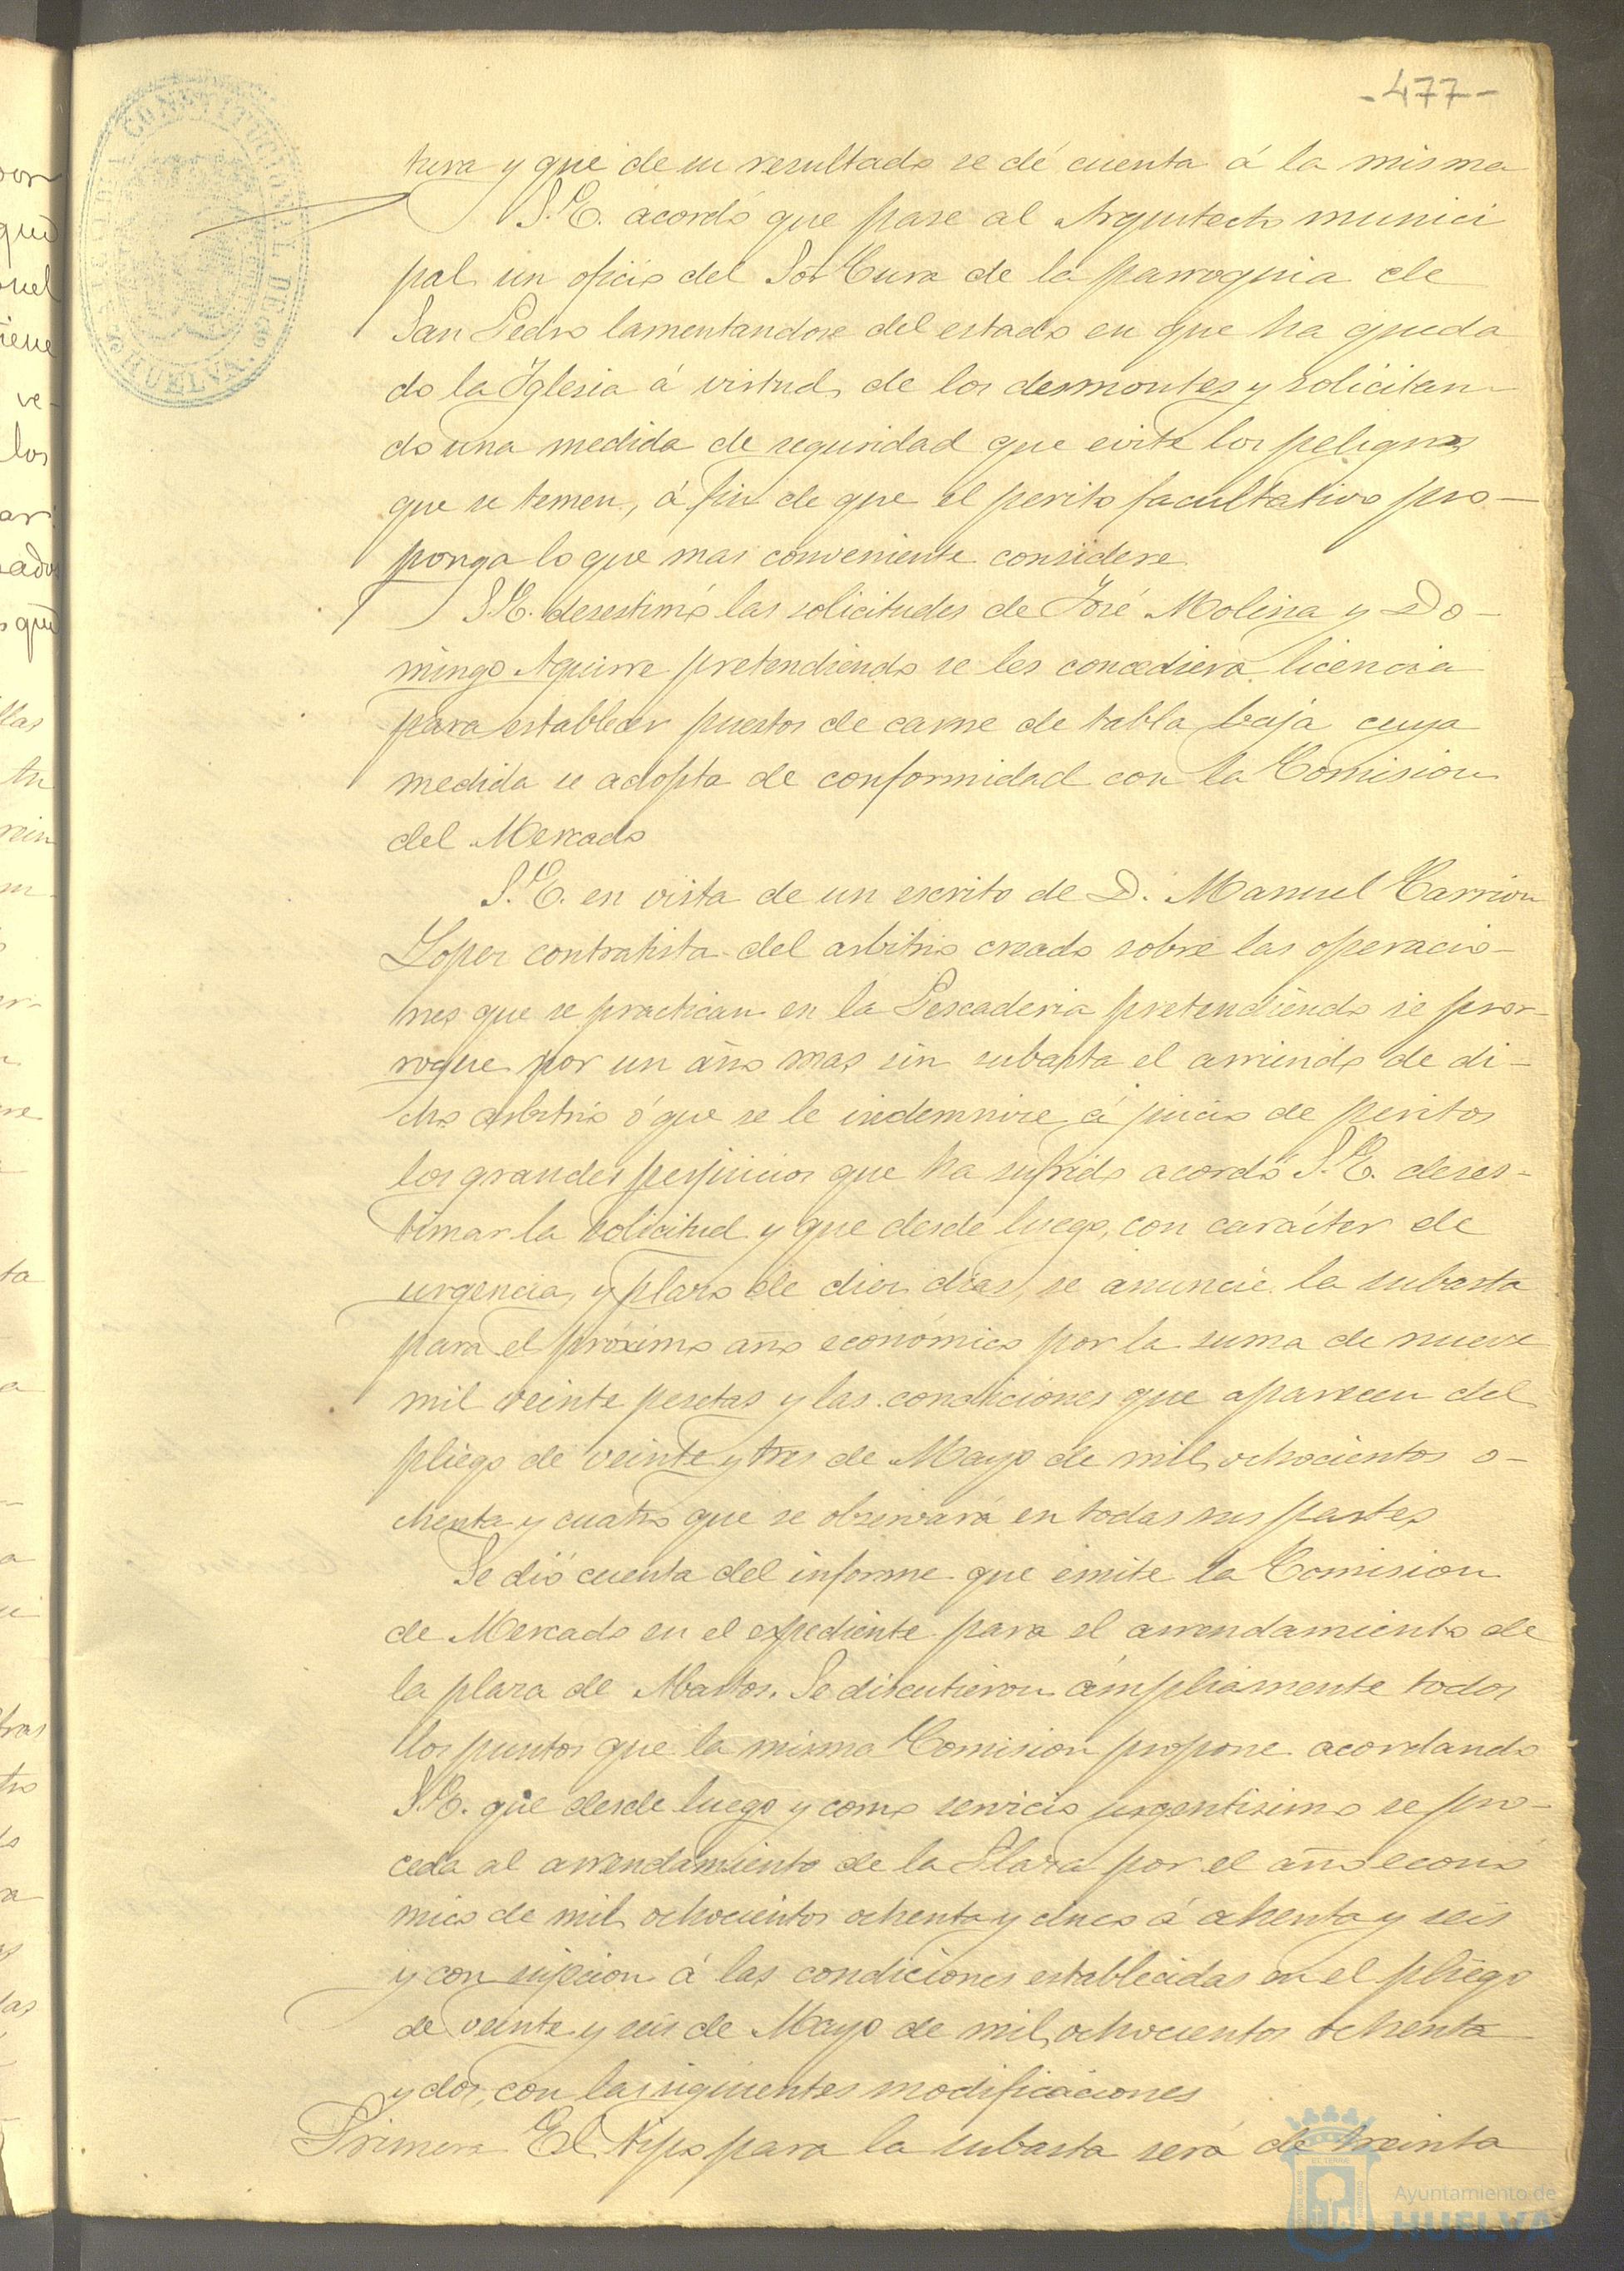 -477-
tura y que de su resultado se dé cuenta á la misma
S.E. acordó que pase al Arquitecto munici
pal un oficio del Sor Cura de la parroquia de
San Pedro lamentandose del estado en que ha queda
do la Iglesia á virtud de los desmontes y solicitan-
do una medida de seguridad que evite los peligros
que se temen, á fin de que el perito facultativo pro-
ponga lo que mas conveniente considere
S.E. desestimó las solicitudes de José Molina y Do-
mingo Aguirre pretendiendo se les concediera licencia
para establecer puestos de carne de tabla baja cuya
medida se adopta de conformidad con la Comision
del Mercado
S.E. en vista de un escrito de D. Manuel Carrion
Lopez contratista del arbitrio creado sobre las operacio-
nes que se practican en la Pescaderia pretendiendo se pror-
rogue por un año mas sin subasta el arriendo de di-
cho arbitrio ó que se le indemnice á juicio de peritos
los grandes perjuicios que ha sufrido acordó S.E. deses-
timar la solicitud y que desde luego, con carácter de
urgencia, y plazo de diez dias, se anuncie la subasta
para el próximo año económico por la suma de nueve
mil veinte pesetas y las condiciones que aparecen del
pliego de veinte y tres de Mayo de mil ochocientos o-
chenta y cuatro que se observará en todas sus partes
Se dió cuenta del informe que emite la Comision
de Mercado en el expediente para el arrendamiento de
la plaza de Abastos. Se discutieron ámpliamente todos
los puntos que la misma Comision propone acordando
S.E. que desde luego y como servicio urgentisimo se pro-
ceda al arrendamiento de la Plaza por el año econó
mico de mil ochocientos ochenta y cinco á ochenta y seis
y con sujecion á las condiciones establecidas en el pliego
de veinte y seis de Mayo de mil ochocientos ochenta
y dos, con las siguientes modificaciones
Primera El tipo para la subasta será de treinta
CONSTITUCIONAL DE
HUELVA.
Ayuntamiento de
HUELVA